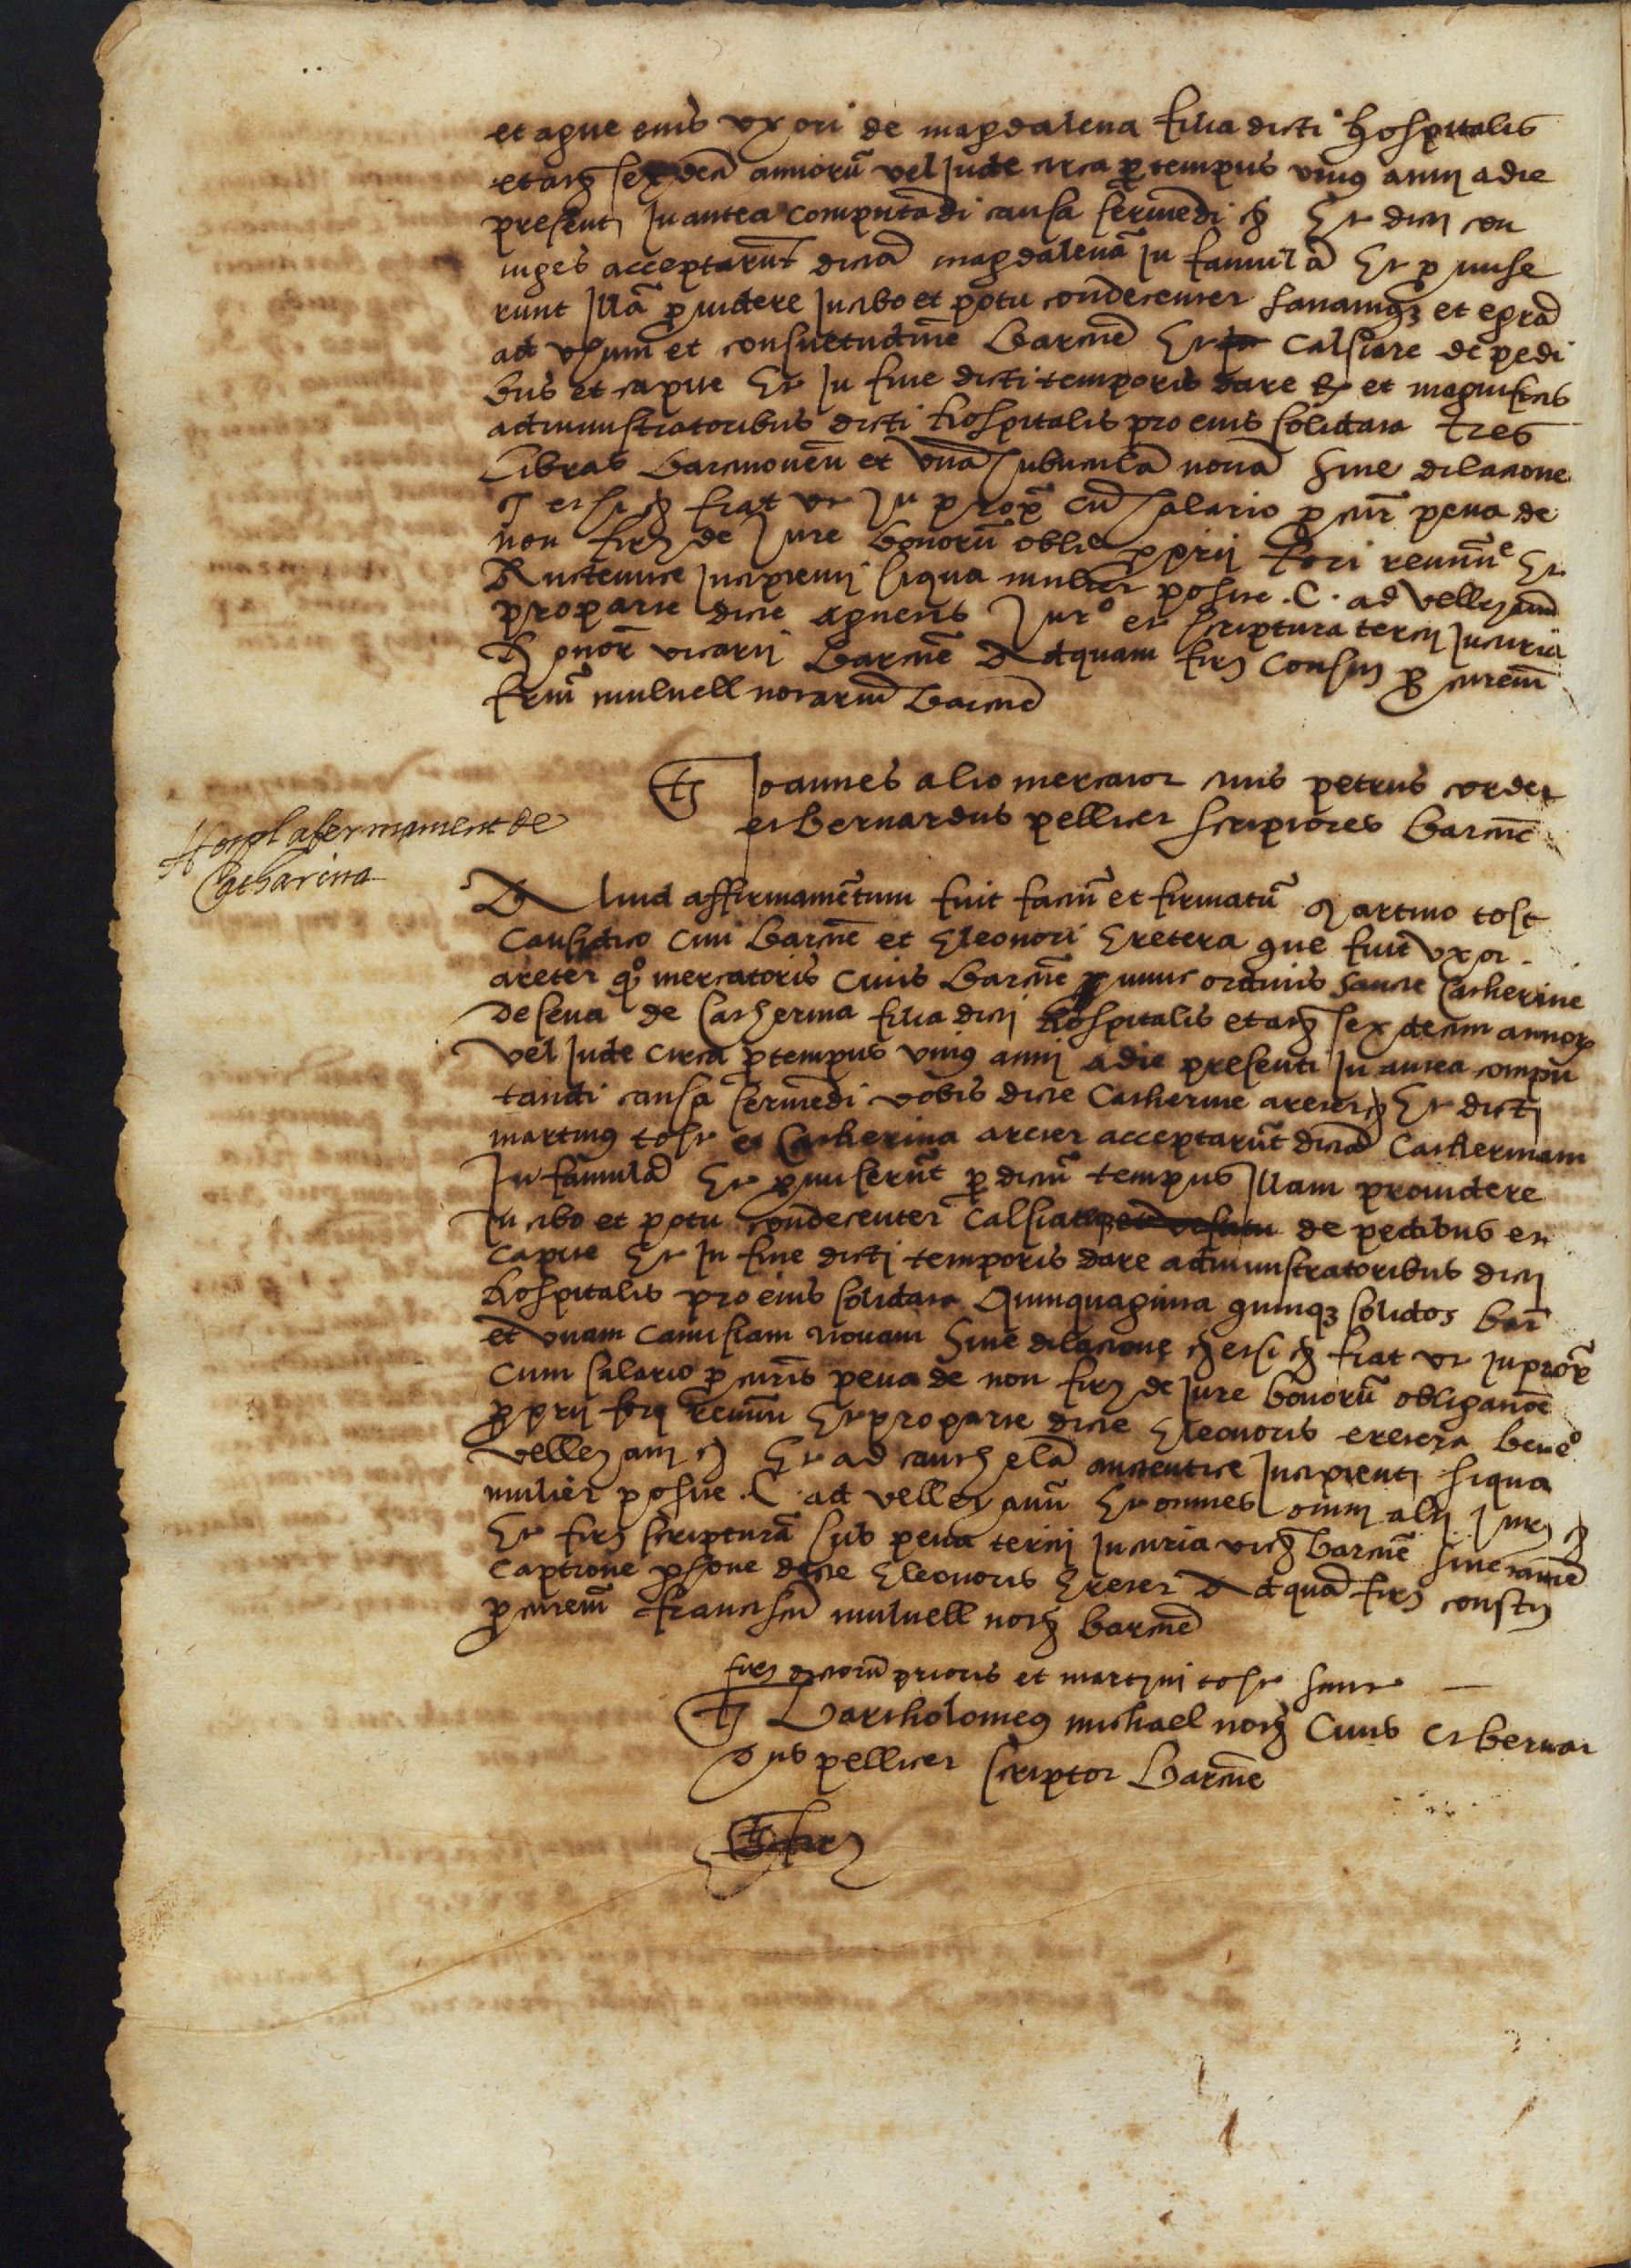 et agne eius uxori de magdalena filia dicti hospitalis
etatis sexdecĩ annorũ vel inde circa ꝑ tempus unius anni a die
presenti In antea computãdi causa serviẽdi ⁊c̃ Et dicti con
iuges acceptarunt dictã magdalenã In famulã Et promise
runt Illã providere In cibo et potu condecenter sanamqʒ et egrã
ad usum et consuetudinẽ barcñe Et calsiare de pedi
bus et capite Et In fine dicti temporis dare et magnificis
administratoribus dicti hospitalis pro eius solidata tres
libras barcinonen̄ et unã subuculã novã sine dilacione
⁊c̃ et si ⁊c̃ fiat ut In proxº cũ salario ꝓcur̃ pena de
non firʒ de Iure bonorũ oblic ꝓprii fori renunc Et
Autentice incipienti siqua mulier posite .C. ad velleyanũ
pro parte dicte agnetis Iurº et scriptura tercii In curia
honorͫ vicarii barcñe Ad quam firʒ constʒ ꝓcurem̃
fram̃ mulnell notarium barcñe

Tʒ Ioannes alio mercator civis petrus corder
et bernardus pellicer scriptores barcñe

Hospl afermament de
Catharina

Aliud affirmamẽtum fuit factũ et firmatũ Martino tost
Causidico Civi barcñe et Eleonori Eretera que fuit uxor
areter qº mercatoris civis barcñe nunc ordinis sancte Catherine
de sena de Catherina filia dicti hospitalis etatis sexdecim annorꝝ
vel inde circa ꝑ tempus unius anni a die presenti In antea compu
tandi causa serviẽdi vobis dicte Catherine areter ⁊c̃ Et dicti
martinus tost et Catherina areter acceptarũt dictã Catherinam
In famulã Et promiserũt ꝑ dictũ tempus Illam providere
In cibo et potu condecenter calsiatam de pedibus et
capite Et In fine dicti temporis dare administratoribus dicti
hospitalis pro eius solidata Quinquaginta quinqʒ solidos bar̃
et unam camisiam novam sine dilacione ⁊c̃ et si ⁊c̃ fiat ut In proxº
cum salario ꝓcuris pena de non firʒ de Iure bonorũ obligatioẽ
ꝓprii fori renun̄ Et pro parte dicte Eleonoris eretera beneº
velleyani ⁊c̃ Et ad cauthelã autentice Incipienti siqua
mulier posite .C. ad velleyanũ Et omnes omni alii Iurʒ ⁊c̃
Et firʒ scripturã sub pena tercii In curia vicʒ barcñe sine tamẽ
captione ꝑsone dicte Eleonoris Ereter Ad quã firʒ constʒ
ꝓcurem̃ franciscũ mulnell notʒ barcñe

firʒ dictorũ prioris et martini tost sunt
Tʒ Bartholomeus michael notʒ Civis et bernar
dus pellicer scriptor barcñe